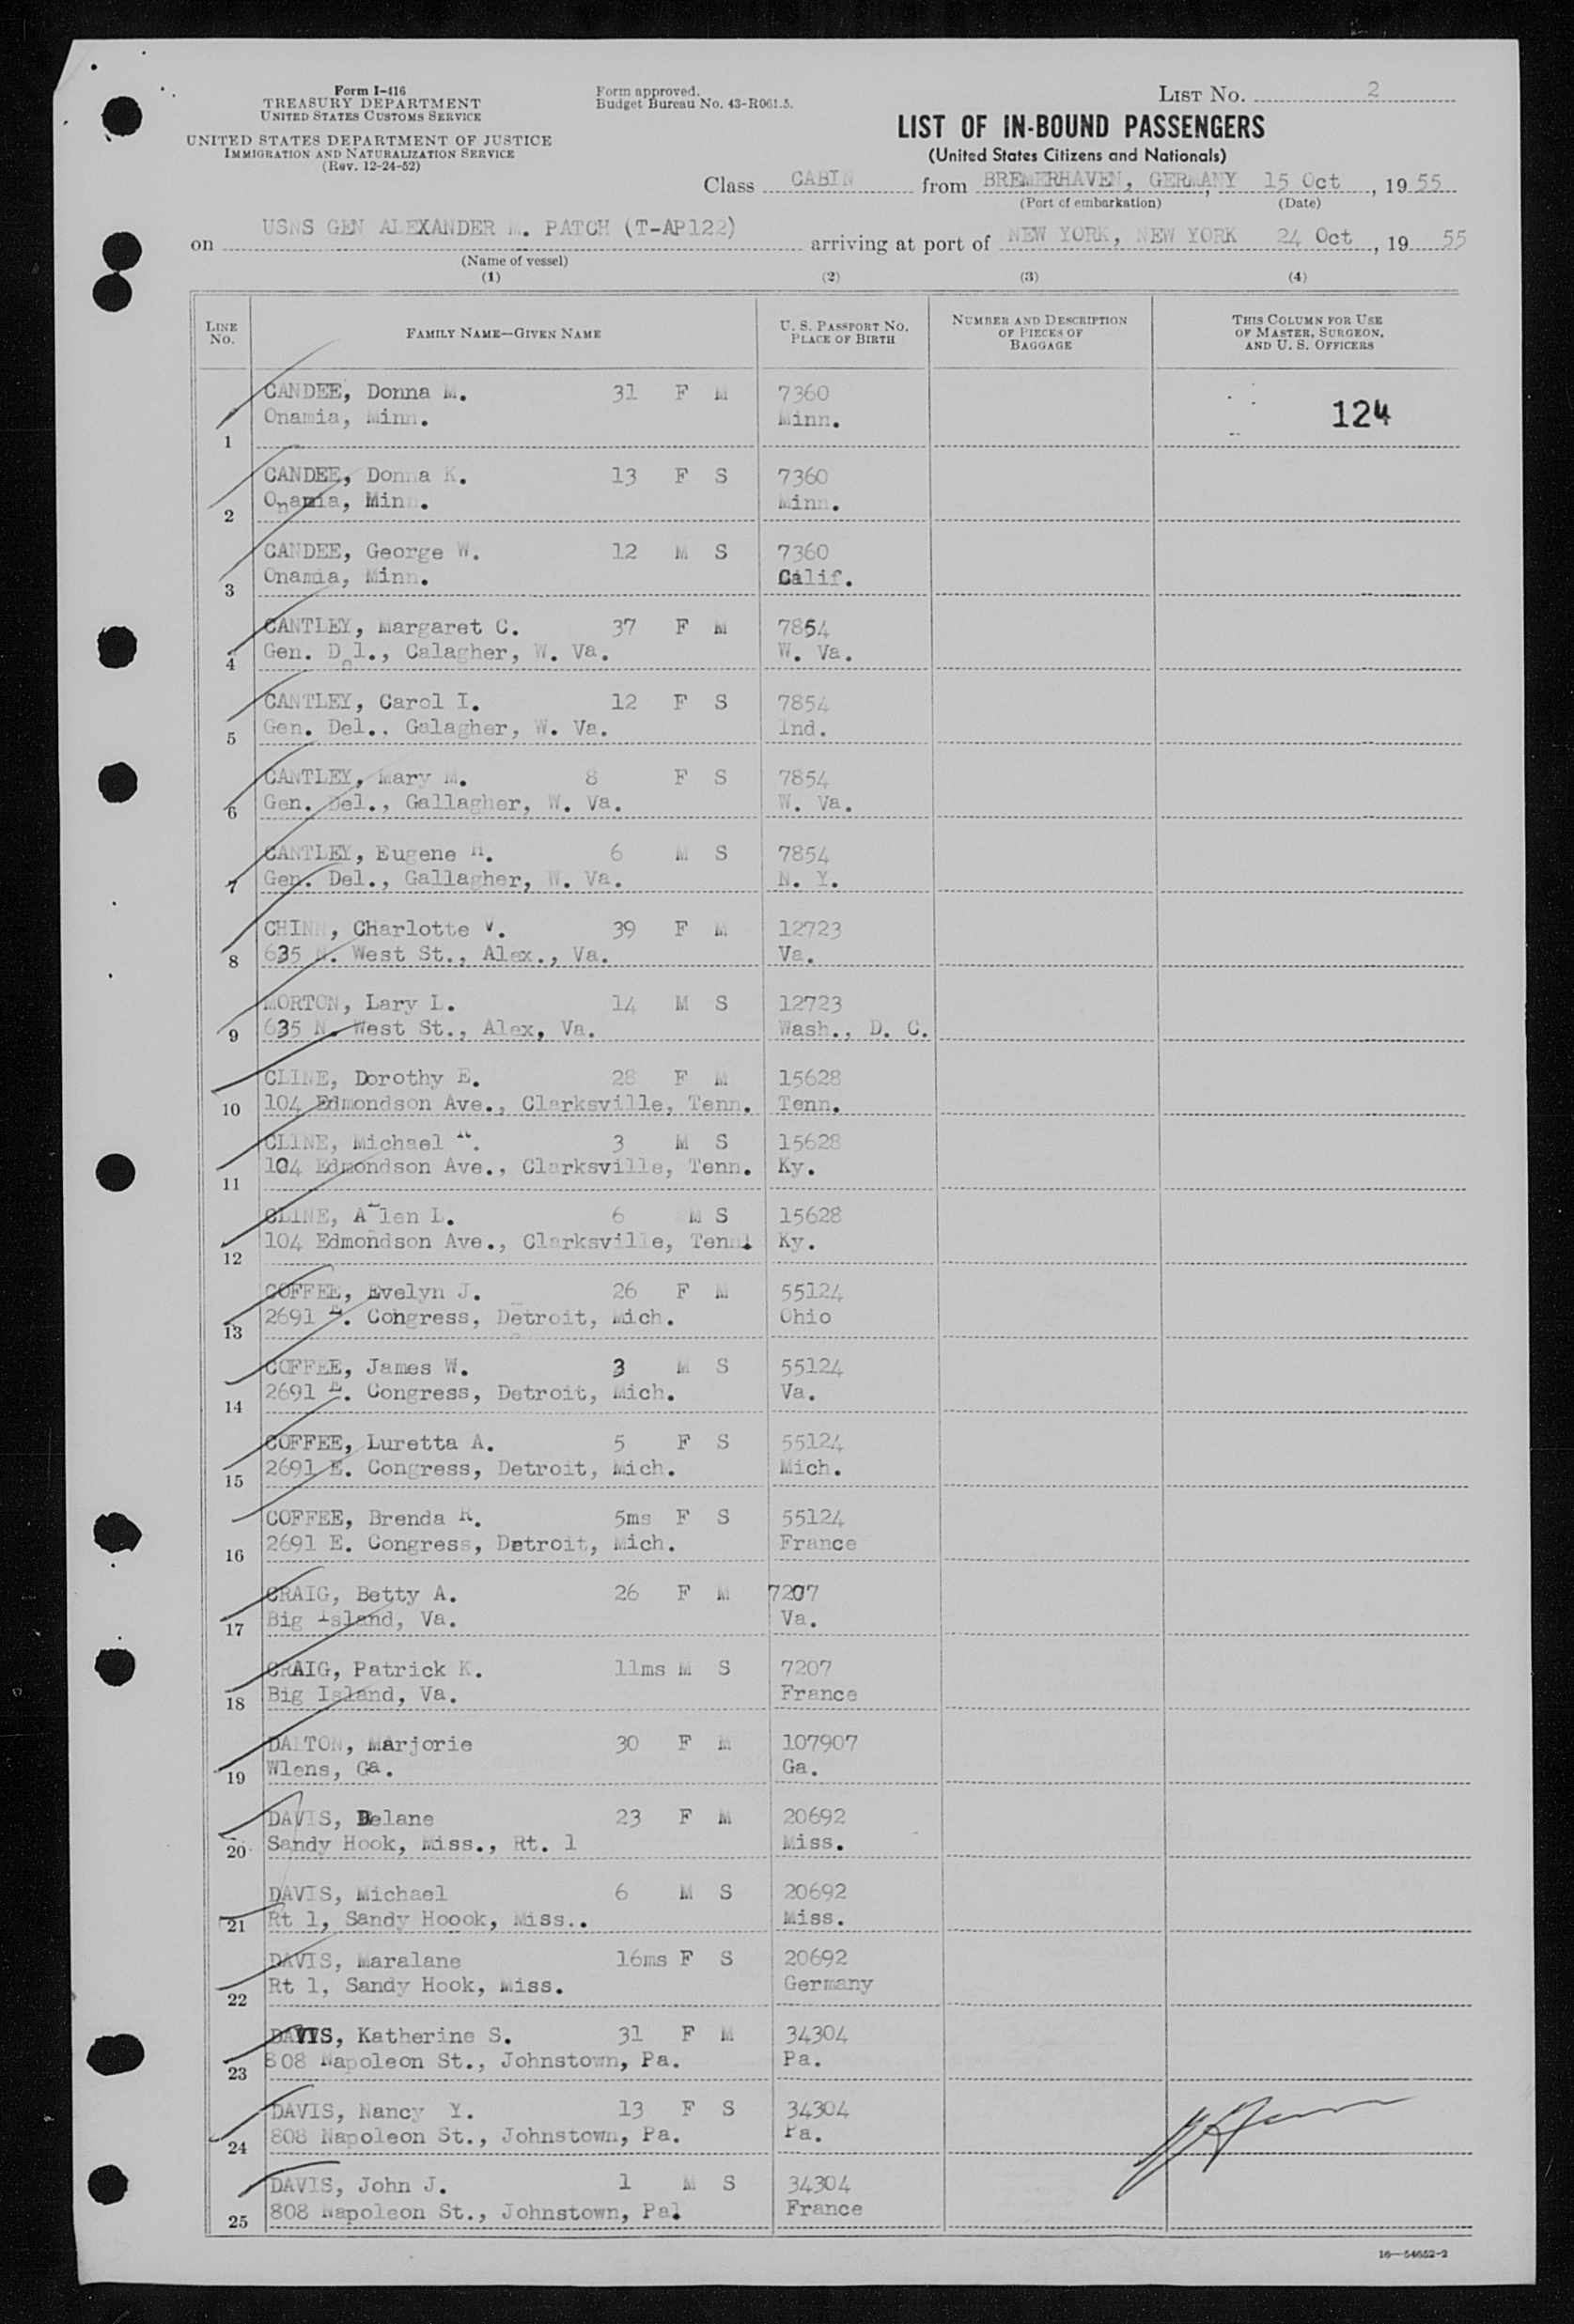 Form I-416
TREASURY DEPARTMENT
UNITED STATES CUSTOMS SERVICE
UNITED STATES DEPARTMENT OF JUSTICE
IMMIGRATION AND NATURALIZATION SERVICE
(Rev. 12-24-52)
Form approved.
Budget Bureau No. 43-R061.5.
LIST No. 2
LIST OF IN-BOUND PASSENGERS
(United States Citizens and Nationals)
Class CABIN from BREMERHAVEN, GERMANY, 15 Oct, 19 55
(Port of embarkation) (Date)
on USNS GEN ALEXANDER M. PATCH (T-AP122) arriving at port of NEW YORK, NEW YORK 24 Oct, 19 55
(Name of vessel)
(1) (2) (3) (4)
LINE No. FAMILY NAME—GIVEN NAME U. S. PASSPORT NO. PLACE OF BIRTH NUMBER AND DESCRIPTION OF PIECES OF BAGGAGE THIS COLUMN FOR USE OF MASTER, SURGEON, AND U. S. OFFICERS
CANDEE, Donna M. 31 F M 7360
Onamia, Minn. Minn. 124
1
CANDEE, Donna K. 13 F S 7360
Onamia, Minn. Minn.
2
CANDEE, George W. 12 M S 7360
Onamia, Minn. Calif.
3
CANTLEY, Margaret C. 37 F M 7854
4 Gen. Del., Calagher, W. Va. W. Va.
CANTLEY, Carol I. 12 F S 7854
5 Gen. Del., Galagher, W. Va. Ind.
CANTLEY, Mary M. 8 F S 7854
6 Gen. Del., Gallagher, W. Va. W. Va.
CANTLEY, Eugene H. 6 M S 7854
7 Gen. Del., Gallagher, W. Va. N. Y.
CHINN, Charlotte V. 39 F M 12723
8 635 N. West St., Alex., Va. Va.
MORTON, Lary L. 14 M S 12723
9 635 N. West St., Alex, Va. Wash., D. C.
CLINE, Dorothy E. 28 F M 15628
10 104 Edmondson Ave., Clarksville, Tenn. Tenn.
CLINE, Michael 3 M S 15628
104 Edmondson Ave., Clarksville, Tenn. Ky.
11
CLINE, Allen L. 6 M S 15628
104 Edmondson Ave., Clarksville, Tenn. Ky.
12
COFFEE, Evelyn J. 26 F M 55124
2691 E. Congress, Detroit, Mich. Ohio
13
COFFEE, James W. 3 M S 55124
2691 E. Congress, Detroit, Mich. Va.
14
COFFEE, Luretta A. 5 F S 55124
2691 E. Congress, Detroit, Mich. Mich.
15
COFFEE, Brenda R. 5ms F S 55124
2691 E. Congress, Detroit, Mich. France
16
CRAIG, Betty A. 26 F M 7207
Big Island, Va. Va.
17
CRAIG, Patrick K. 11ms M S 7207
Big Island, Va. France
18
DALTON, Marjorie 30 F M 107907
Wlens, Ga. Ga.
19
DAVIS, Delane 23 F M 20692
Sandy Hook, Miss., Rt. 1 Miss.
20
DAVIS, Michael 6 M S 20692
Rt 1, Sandy Hoook, Miss.. Miss.
21
DAVIS, Maralane 16ms F S 20692
Rt 1, Sandy Hook, Miss. Germany
22
DAVIS, Katherine S. 31 F M 34304
808 Napoleon St., Johnstown, Pa. Pa.
23
DAVIS, Nancy Y. 13 F S 34304
808 Napoleon St., Johnstown, Pa. Pa.
24
DAVIS, John J. 1 M S 34304
808 Napoleon St., Johnstown, Pa. France
25
16—54652-2